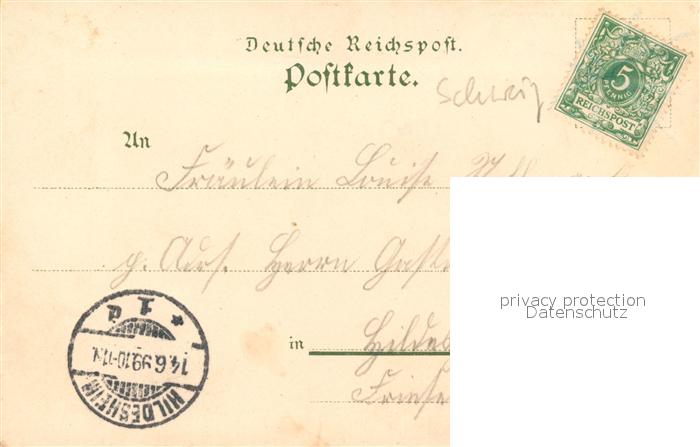 Deutsche Reichspost.
Postkarte.
Schweiz
5
PFENNIG
REICHSPOST
An
Fräulein Louise
p. Adr. Herrn
in
HILDESHEIM
1 d
14.6.99.10-11.V.
privacy protection
Datenschutz